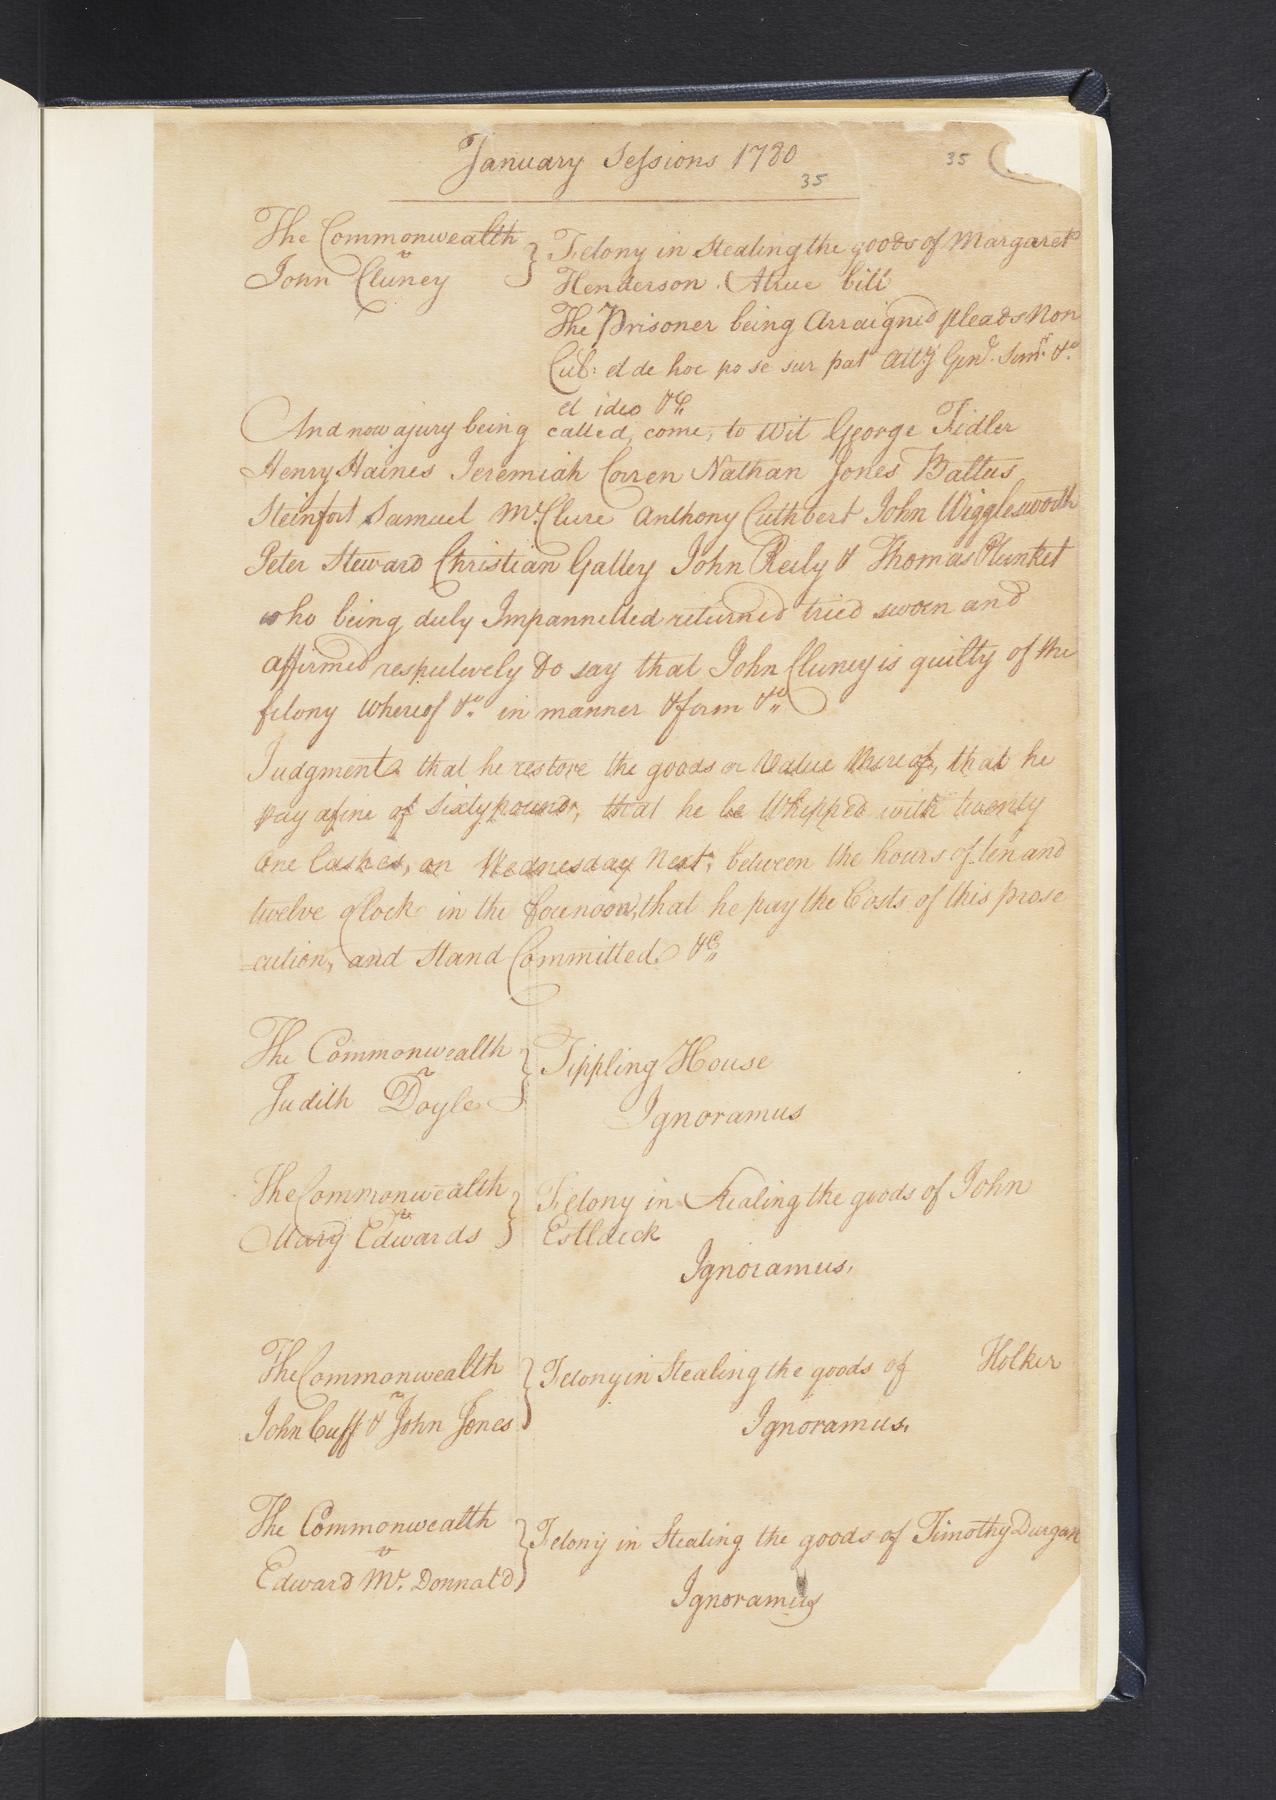 January Sessions 1780
35
35
The Commonwealth
v
John Cluney
Felony in Stealing the goods of Margaret
Henderson. A true bill
The Prisoner being Arraigned pleads Non
Cul: et de hoc po se sur pat Atty Genl. Simr. &c.
et ideo &c
And now a jury being called, come, to Wit George Fidler
Henry Haines Jeremiah Corren Nathan Jones Baltus
Steinfort Samuel McClure Anthony Cuthbert John Wigglesworth
Peter Steward Christian Galley John Reily & Thomas Plunket
who being duly Impannelled returned tried sworn and
affirmed respectively Do say that John Cluney is guilty of the
felony whereof &c. in manner & form &c
Judgment that he restore the goods or Value thereof, that he
pay a fine of Sixty pounds, that he be Whipped with twenty
One lashes, on Wednesday Next, between the hours of ten and
twelve o'Clock in the forenoon, that he pay the Costs of this prose
-cution, and Stand Committed. &c
The Commonwealth
v
Judith Doyle
Tippling House
Ignoramus
The Commonwealth
v
Mary Edwards
Felony in Stealing the goods of John
Estlack
Ignoramus.
The Commonwealth
v
John Cuff & John Jones
Felony in Stealing the goods of Holker
Ignoramus.
The Commonwealth
v
Edward Mc. Donnald
Felony in Stealing the goods of Timothy Durgan
Ignoramus